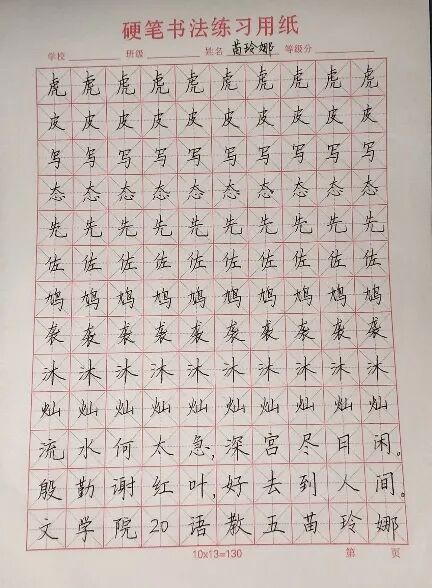 硬笔书法练习用纸
学校 班级 姓名 苗玲娜 等级分
虎 虎 虎 虎 虎 虎 虎 虎 虎 虎
皮 皮 皮 皮 皮 皮 皮 皮 皮 皮
写 写 写 写 写 写 写 写 写 写
态 态 态 态 态 态 态 态 态 态
先 先 先 先 先 先 先 先 先 先
佐 佐 佐 佐 佐 佐 佐 佐 佐 佐
鸠 鸠 鸠 鸠 鸠 鸠 鸠 鸠 鸠 鸠
袭 袭 袭 袭 袭 袭 袭 袭 袭 袭
沐 沐 沐 沐 沐 沐 沐 沐 沐 沐
灿 灿 灿 灿 灿 灿 灿 灿 灿 灿
流水何太急,深宫尽日闲。
殷勤谢红叶,好去到人间。
文学院20语教五苗玲娜
10x13=130 第 页